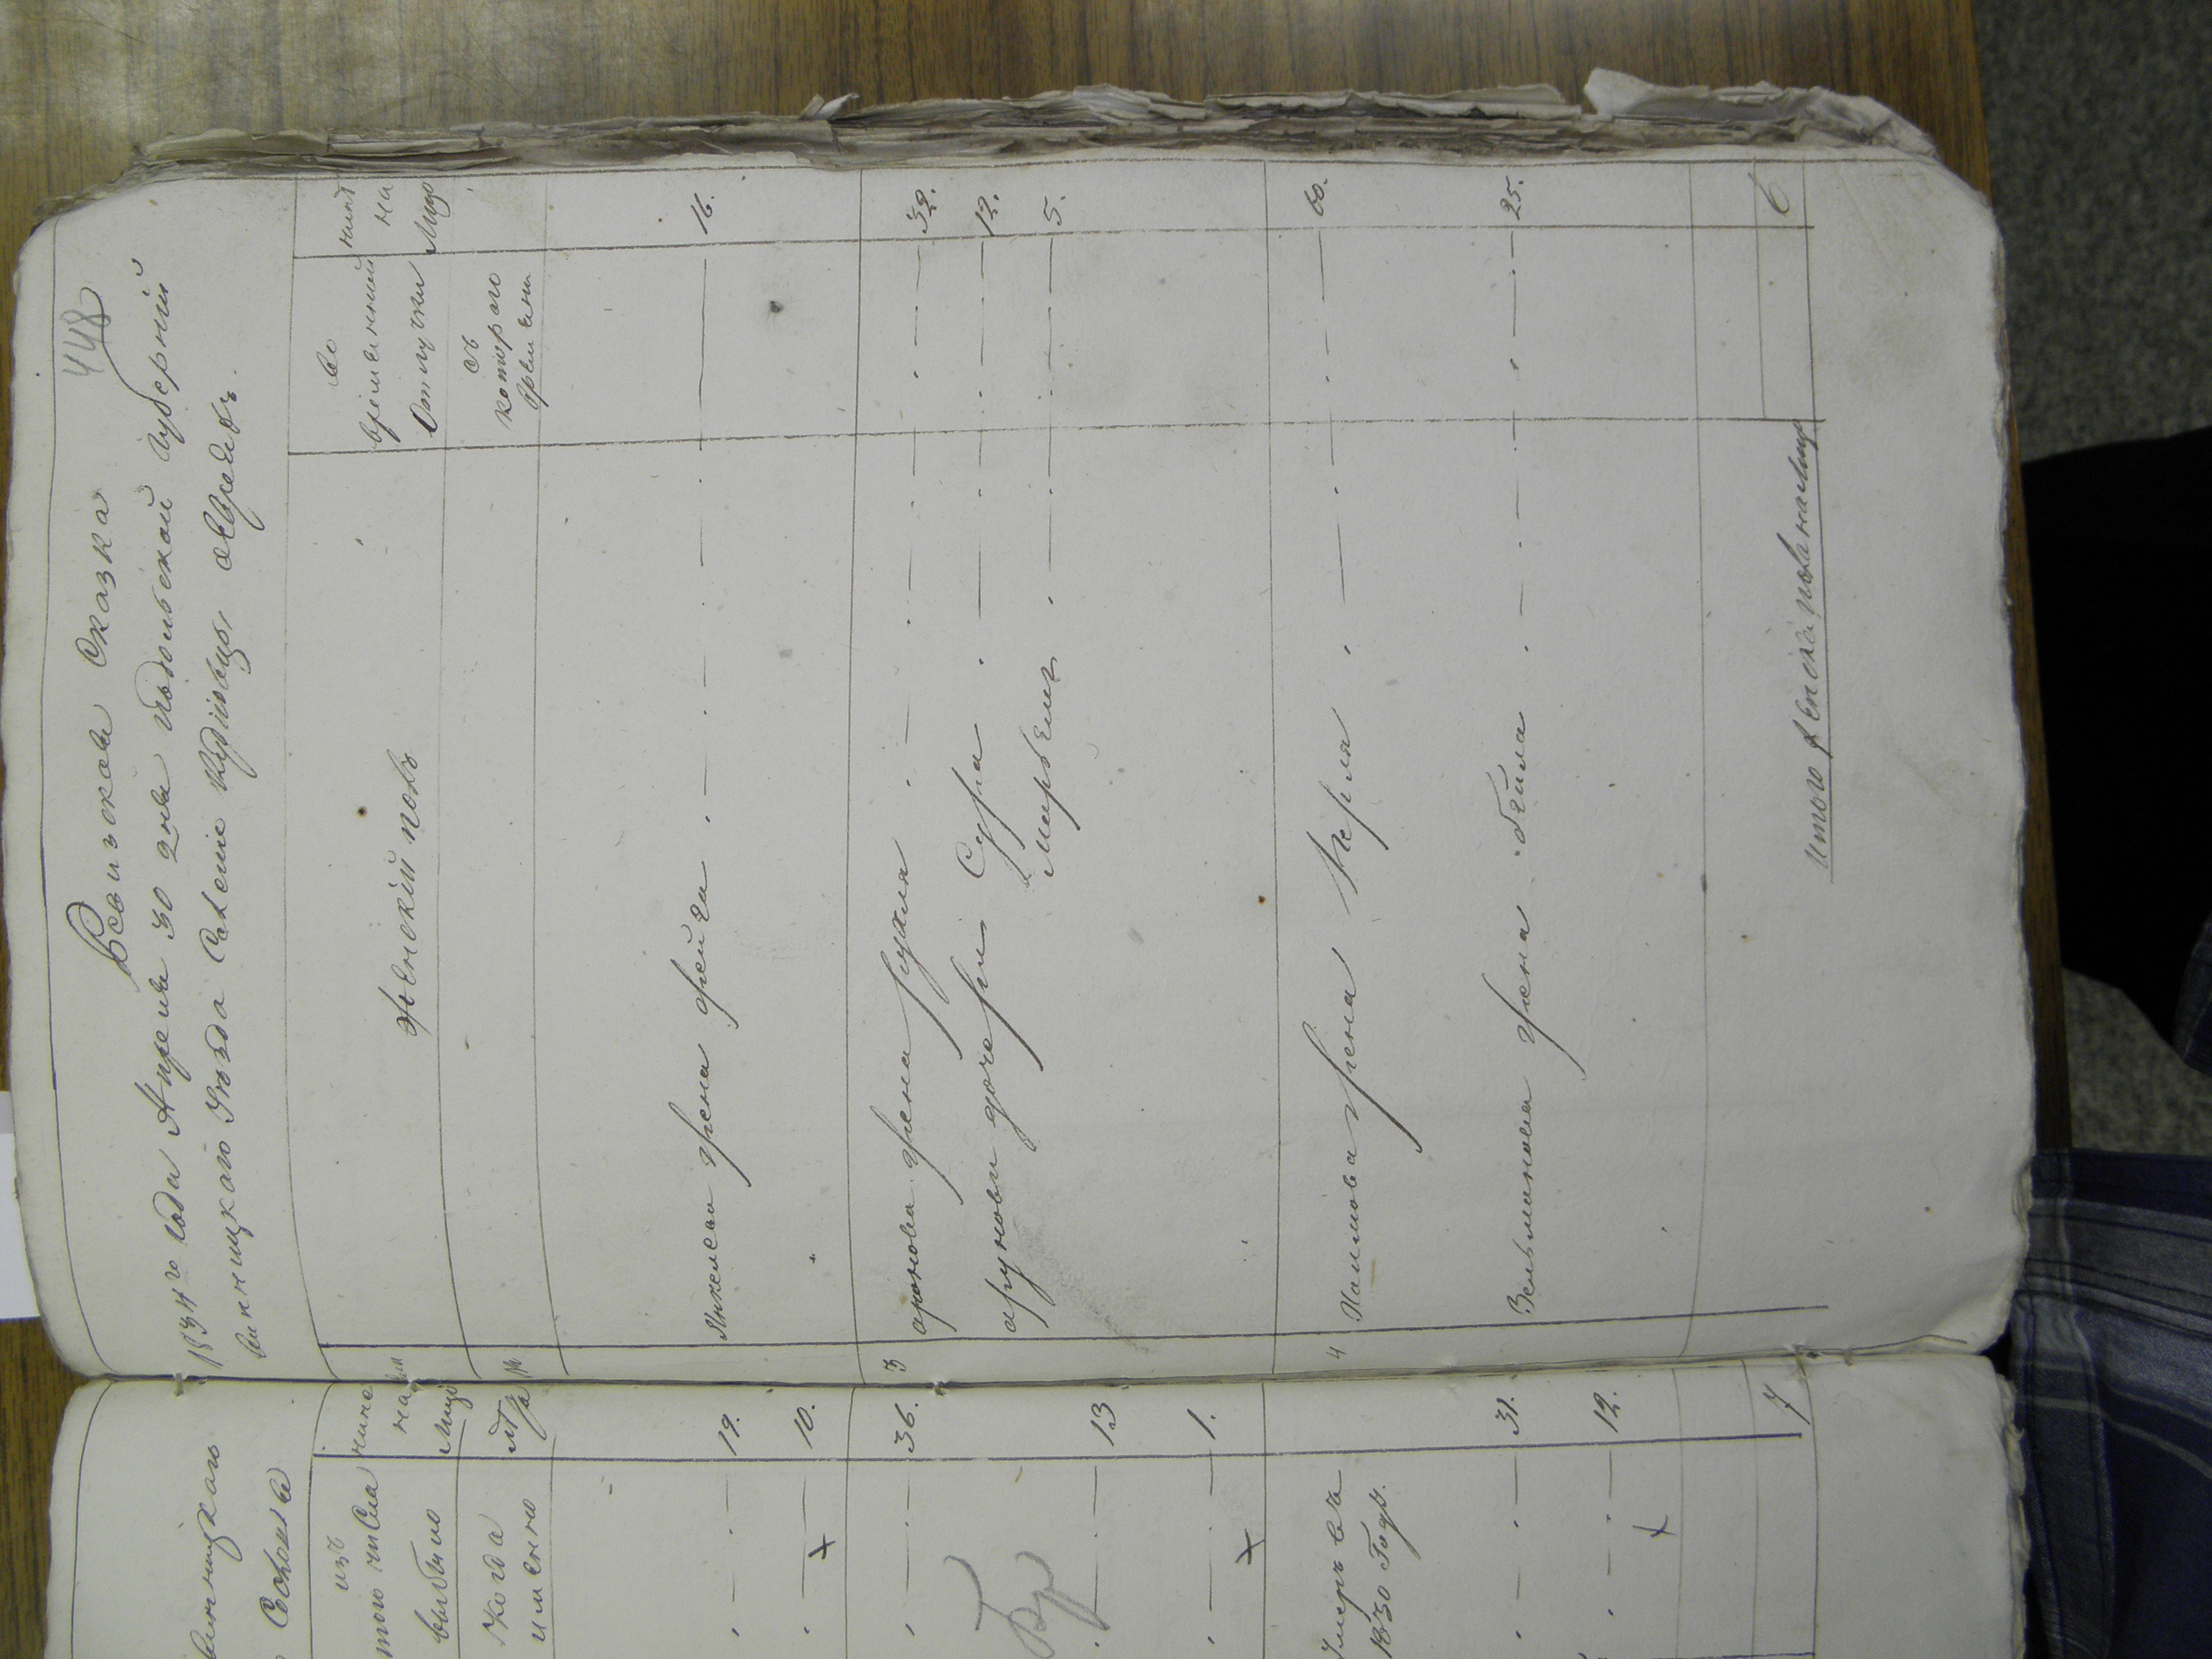 448
Ревизская Сказка
1834го года Апреля 30 дня Подольской Губерний
винницкаго Уезда Селение евреевъ.
Женский полъ
во
временний
Отлучки
ныне
на
Лицо
съ
котораго
времени
Янкелева жена фейга 16.
3 аронова жена рухля 32.
аруновы дочери Сура 12.
5.
4 Хаимова жена Перля 60.
Зельманова жена бейла 25.
Итого женска пола налицо 6
винницкаго
изъ
того числа
выбыло
ныне
на
Лицо
когда
именно
лѣта
19.
10.
36.
13
1.
Умеръ въ
1830 Году.
31.
12.
7